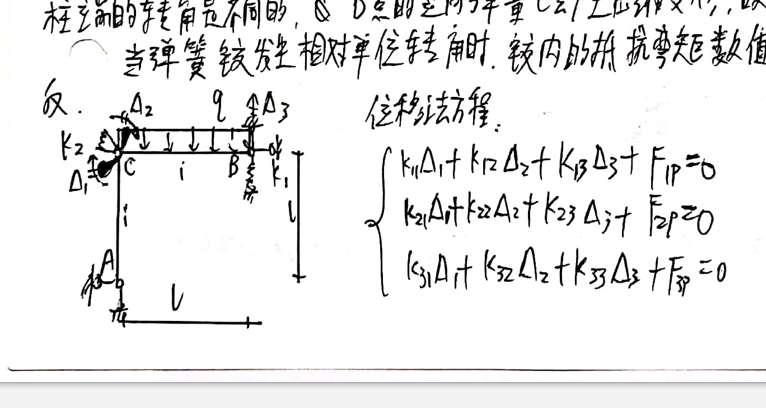 柱端的转角是不同的,
当弹簧铰发生相对单位转角时.铰内的抵抗弯矩数值
Δ2 q Δ3
位移法方程:
k2 C i B k1
Δ1
i l
A
l
k11Δ1+k12Δ2+k13Δ3+F1P=0
k21Δ1+k22Δ2+k23Δ3+F2P=0
k31Δ1+k32Δ2+k33Δ3+F3P=0